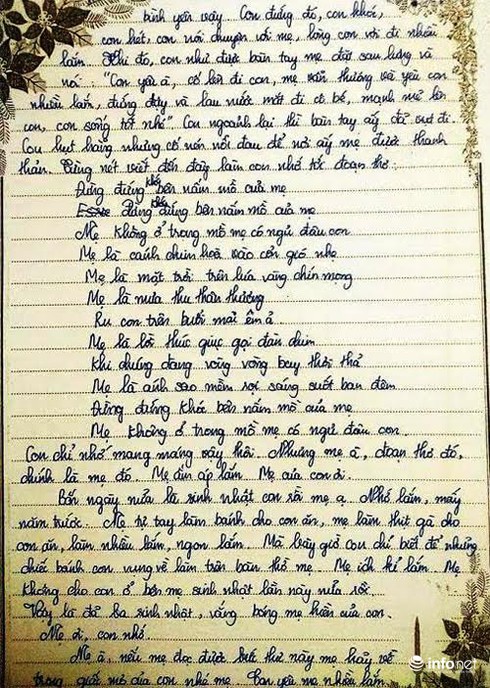 bình yên vậy. Con đứng đó, con khóc,
con hét, con nói chuyện với mẹ, lòng con vơi đi nhiều
lắm. Khi đó, con như được bàn tay mẹ đặt sau lưng và
nói: "Con yêu à, cố lên đi con, mẹ vẫn thương và yêu con
nhiều lắm, đứng dậy và lau nước mắt đi cô bé, mạnh mẽ lên
con, con sống tốt nhé" Con ngoảnh lại thì bàn tay ấy đã vụt đi.
Con hụt hẫng nhưng cố nén nỗi đau để nơi ấy mẹ được thanh
thản. Từng nét viết đến đây làm con nhớ tới đoạn thơ:
Đừng đứng khóc bên nấm mồ của mẹ
Đừng đứng khóc bên nấm mồ của mẹ
Mẹ không ở trong mồ mẹ có ngủ đâu con
Mẹ là cánh chim hoà vào cơn gió nhẹ
Mẹ là mặt trời trên lúa vàng chín mọng
Mẹ là mưa thu thân thương
Ru con trên bưởi mai êm ả
Mẹ là lời thúc giục gọi đàn chim
Khi chúng đang vòng vòng bay thời thả
Mẹ là ánh sao mềm sợi sáng suốt ban đêm
Đừng đứng khóc bên nấm mồ của mẹ
Mẹ không ở trong mồ mẹ có ngủ đâu con.
Con chỉ nhớ mang máng vậy thôi. Nhưng mẹ à, đoạn thơ đó,
chính là mẹ đó. Mẹ ấm áp lắm. Mẹ của con ơi.
Bốn ngày nữa là sinh nhật con rồi mẹ ạ. Nhớ lắm, mấy
năm trước. Mẹ tự tay làm bánh cho con ăn, mẹ làm thịt gà cho
con ăn, làm nhiều lắm, ngon lắm. Mà bây giờ con chỉ biết để những
chiếc bánh con vụng về làm trên bàn thờ mẹ. Mẹ ích kỉ lắm. Mẹ
không cho con ở bên mẹ sinh nhật lần này nữa rồi.
Vậy là đã ba sinh nhật, vắng bóng mẹ hiền của con.
Mẹ ơi, con nhớ.
Mẹ à, nếu mẹ đọc được bức thư này mẹ hãy về
trong giấc mơ của con nhé mẹ. Con yêu mẹ nhiều lắm.
infonet